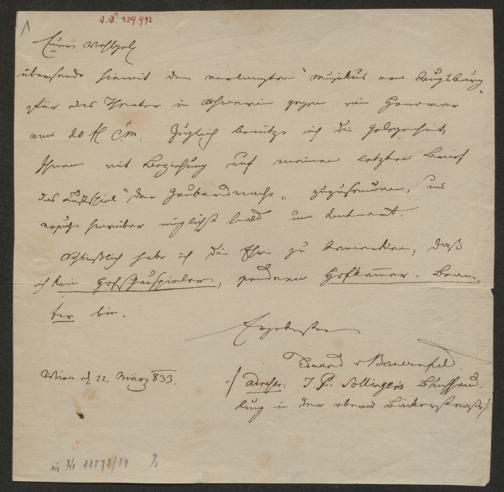 I.N. 129.992
Euer Wohlgeb
übersende hiemit den verlangten "Musikus von Augsburg"
für das Theater in Schwerin gegen ein Honorar
von 20 fl C.M. Zugleich benütze ich die Gelegenheit,
Ihnen mit Beziehung auf meinen letzten Brief
das Lustspiel "der zuzusenden, und
hierüber möglichst bald um Antwort.
Schließlich habe ich die Ehre zu bemerken, daß
ich kein Hofschauspieler, sondern Hofkammer-Beam-
ter bin.
Ergebenster
Eduard v Bauernfeld.
Wien d 22. März 833.
Adresse: J. P. Sollinger's Buchhand-
lung in der obern Bäckerstraße